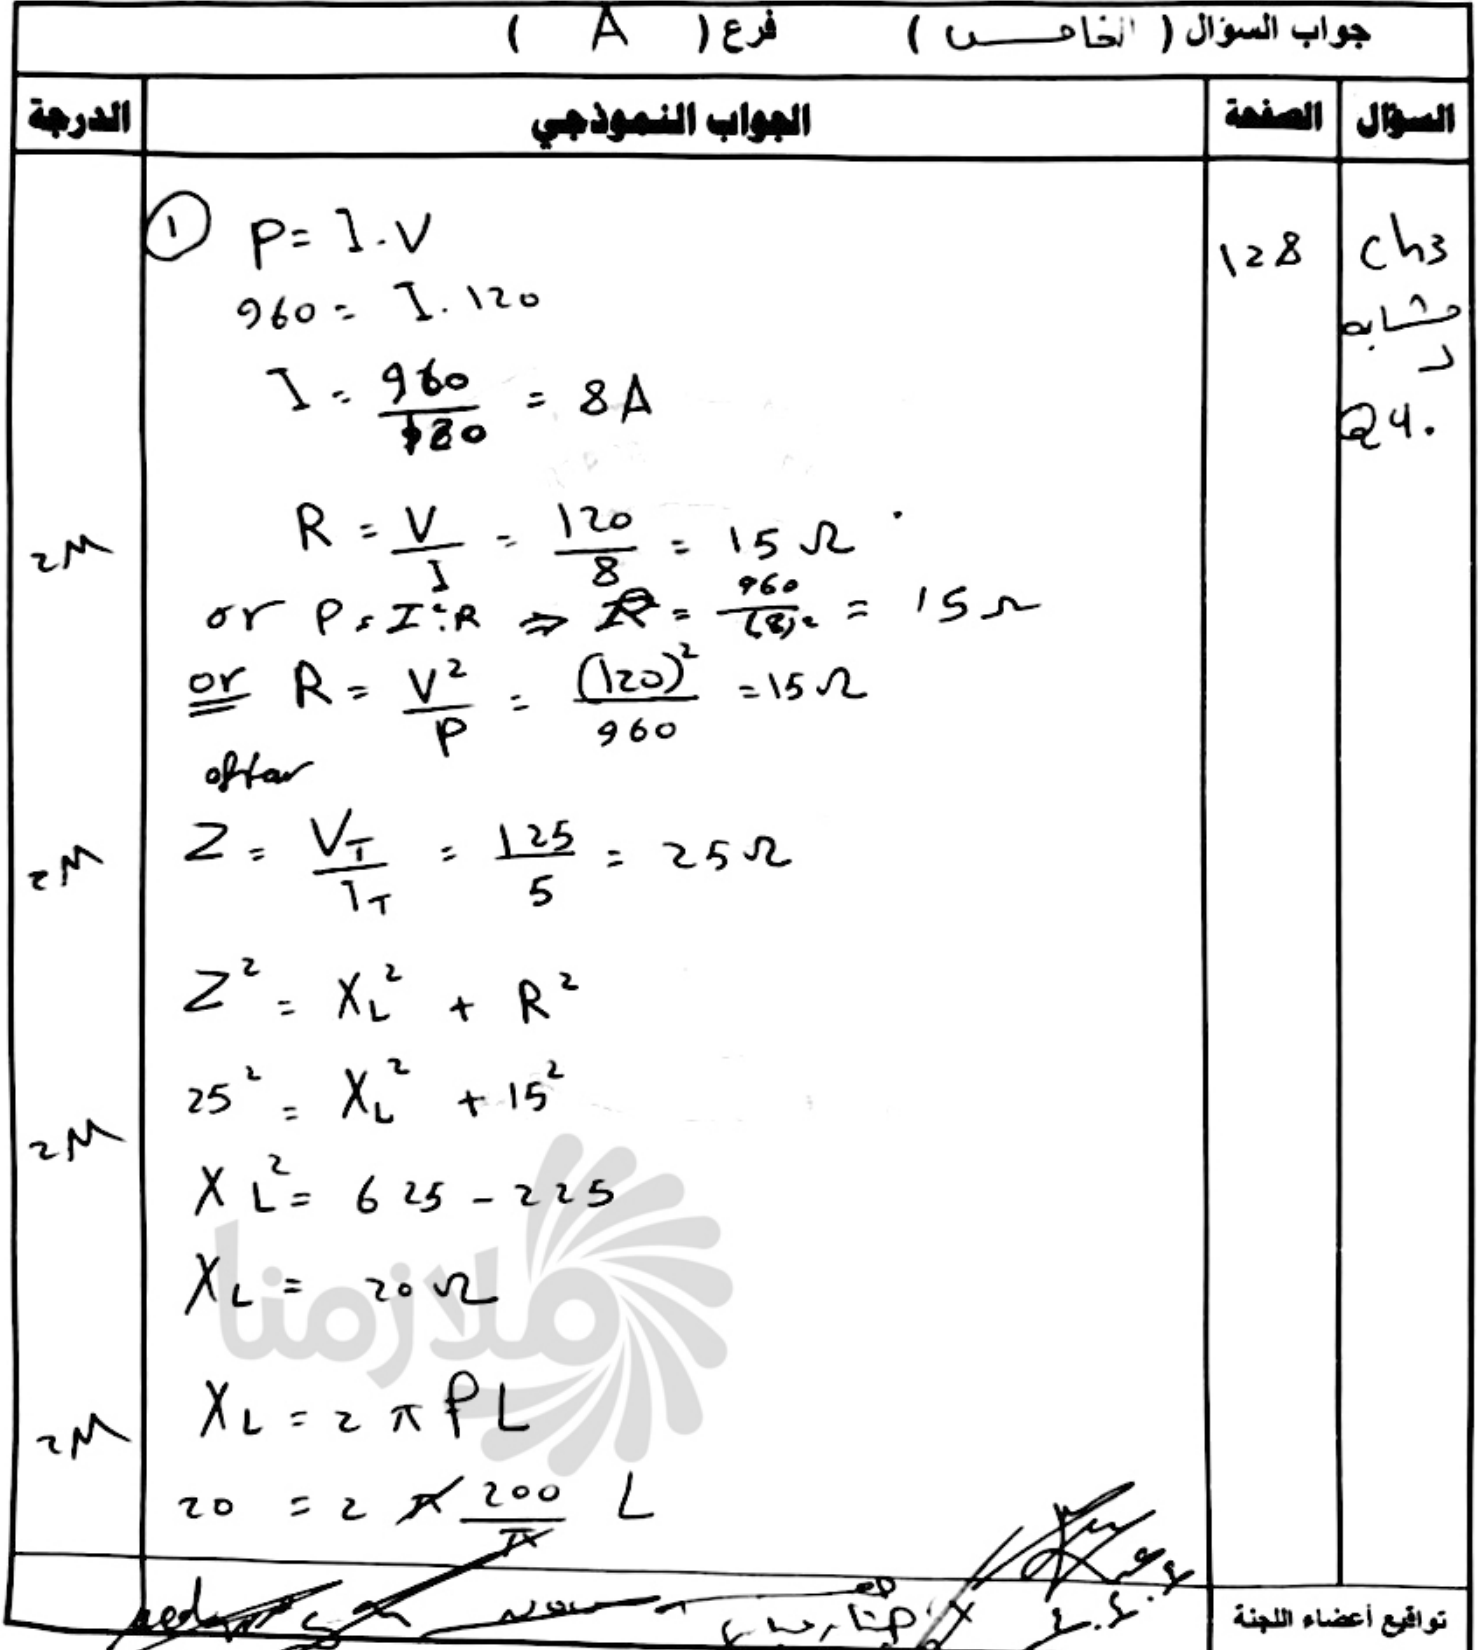 جواب السؤال ( الخامس ) فرع ( A )
السؤال الصفحة الجواب النموذجي الدرجة
① P = I . V
ch3 128
960 = I . 120
مشابه
لـ
I = 960/120 = 8A
Q4.
R = V/I = 120/8 = 15 Ω
2M
or P = I² . R ⇒ R = 960/(8)² = 15 Ω
or R = V²/P = (120)²/960 = 15 Ω
after
Z = V_T/I_T = 125/5 = 25 Ω
2M
Z² = X_L² + R²
25² = X_L² + 15²
2M
X_L² = 625 - 225
X_L = 20 Ω
ملازمنا
X_L = 2 π f L
2M
20 = 2 π 200/π L
تواقيع أعضاء اللجنة